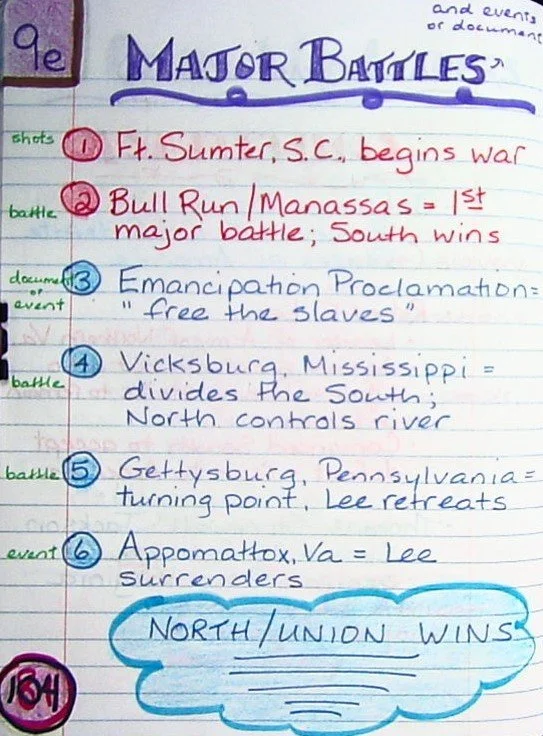 9e
and events
or document
MAJOR BATTLES
shots 1 Ft. Sumter, S.C., begins war
battle 2 Bull Run/Manassas = 1st
major battle; South wins
document or event 3 Emancipation Proclamation =
"free the slaves"
battle 4 Vicksburg, Mississippi =
divides the South;
North controls river
battle 5 Gettysburg, Pennsylvania =
turning point, Lee retreats
event 6 Appomattox, Va = Lee
surrenders
NORTH/UNION WINS
104